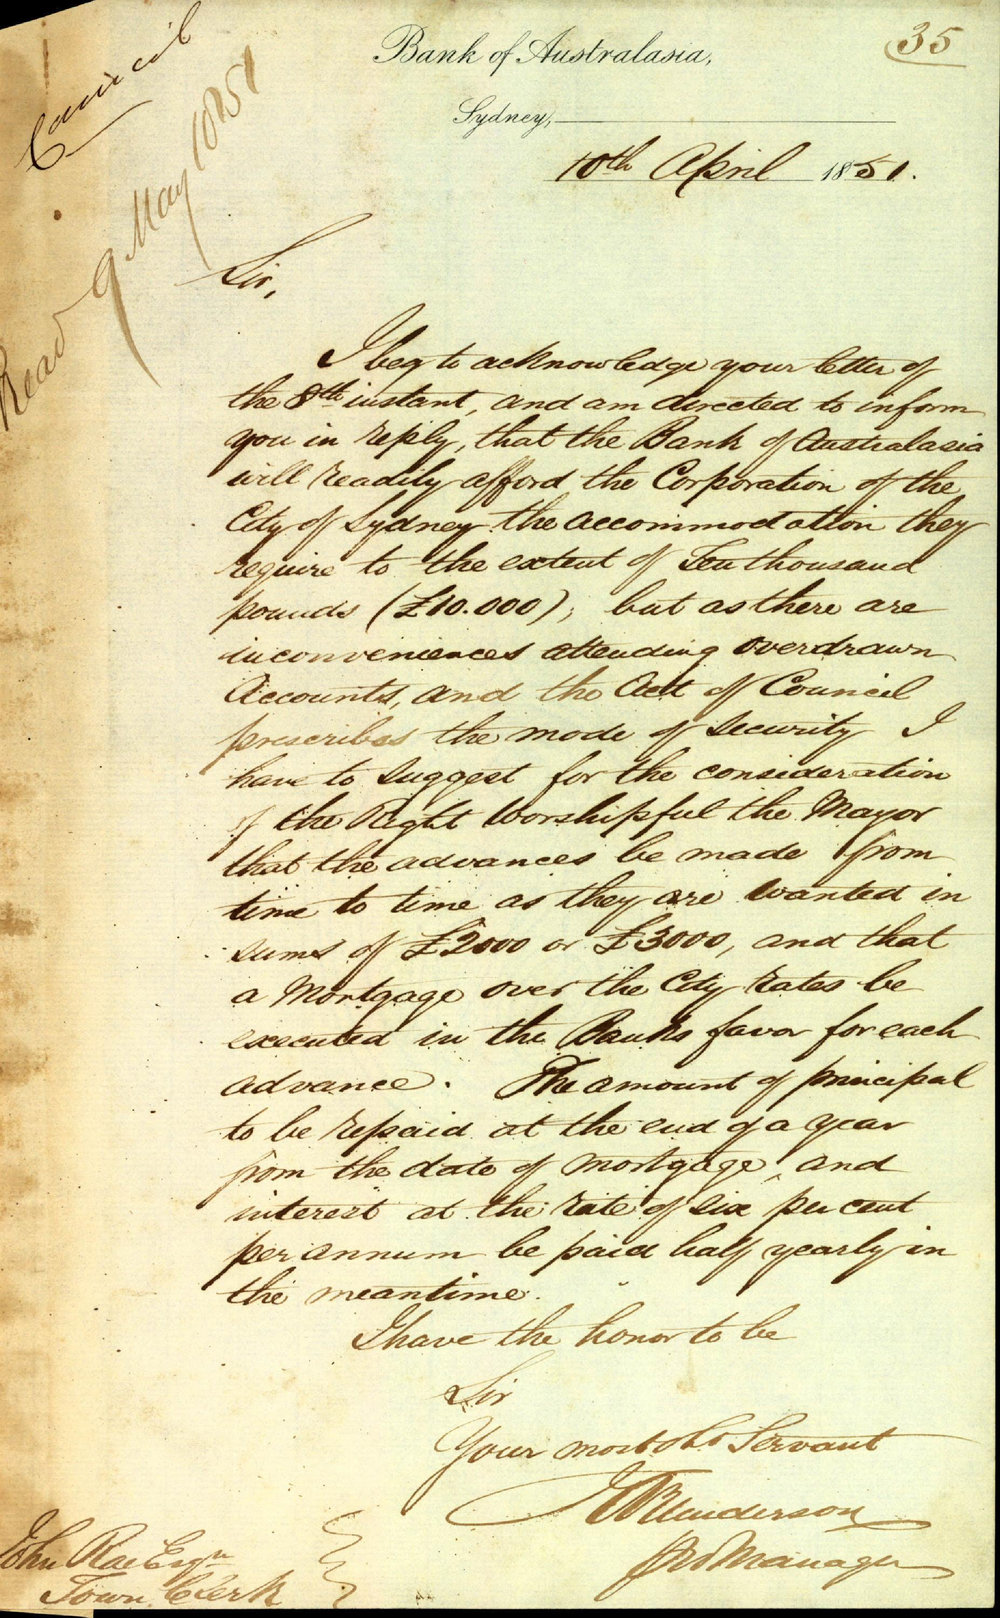 35
Bank of Australasia,
Sydney,
10th April 1851.
Council
Read 9 May 1851
Sir,
I beg to acknowledge your letter of
the 8th instant, and am directed to inform
you in reply, that the Bank of Australasia
will readily afford the Corporation of the
City of Sydney the accommodation they
require to the extent of Ten thousand
pounds (£10.000); but as there are
inconveniences attending overdrawn
Accounts, and the Act of Council
prescribes the mode of security I
have to suggest for the consideration
of the Right Worshipful the Mayor
that the advances be made from
time to time as they are wanted in
sums of £2000 or £3000, and that
a Mortgage over the City rates be
executed in the Banks favor for each
advance. The amount of principal
to be repaid at the end of a year
from the date of mortgage, and
interest at the rate of six per cent
per annum be paid half yearly in
the meantime.
I have the honor to be
Sir
Your most obt Servant
Henderson
Manager
John Rae Esqr
Town Clerk